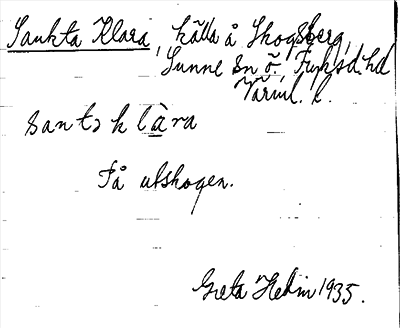 Sankta Klara, källa å Skogsberg,
Sunne sn ö. Fryksd. hd
Värml. l.
santɔ klàra
På utskogen.
Greta Hedin 1935.